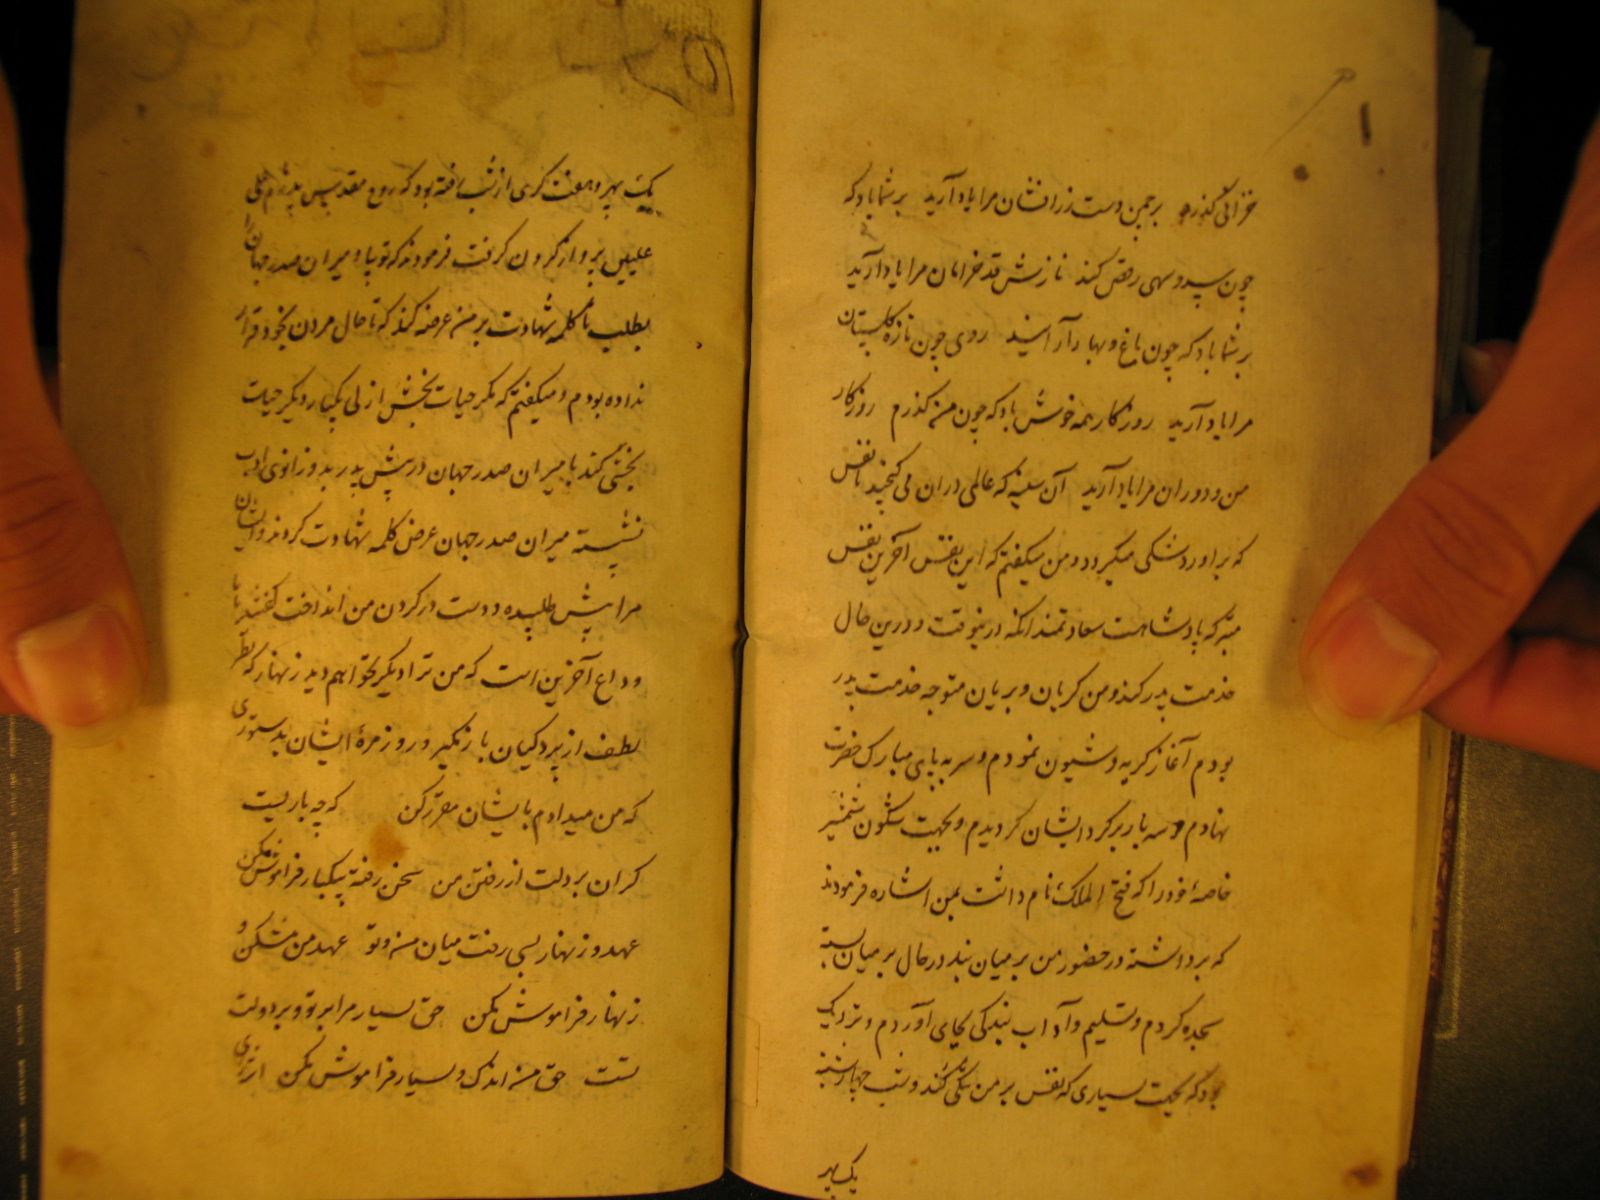 ۱
خزانی گذرد بر چمن دست زرافشان مرا یاد آرید بر شما باد که
چون سرو سهی رقص کند نازش قد خرامان مرا یاد آرید
بر شما باد که چون باغ و بهار آرائید روی چون تازه گلستان
مرا یاد آرید روزگار همه خوش باد که چون من گذرم روزگار
من و دوران مرا یاد آرید آن سینه که عالمی دران می گنجید تا نفس
که بر آورد تنگی میکرد و من میگفتم که این نفس آخرین نفس
که پادشاهت سعادتمند آنکه درینوقت و درین حال
خدمت پدر کند و من گریان و بریان متوجه خدمت پدر
بودم آغاز گریه و شیون نمودم و سر به پای مبارک حضرت
نهادم و سه بار بر گرد ایشان گردیدم و بجهت شگون شمشیر
خاصه خود را که فتح الملک نام داشت بمن اشاره فرمودند
که برداشته در حضور من بر میان بند در حال بر میان بسته
سجده کردم و تسلیم و آداب بندگی بجای آوردم و نزدیک
بود که بجهت بسیاری که نفس بر من تنگی کند و شب چهارشنبه
یک پهر
یک پهر و هفت کری از شب رفته بود که روح مقدس پدرم
علیین پرواز کردن گرفت فرمودند که تو بابا و میران صدر جهان را
بطلب تا کلمه شهادت بر من عرضه کند که تا حال مردن بخود قرار
نداده بودم و میگفتم که مگر حیات بخش ازلی یکبار دیگر حیات
بخشی کند با میران صدر جهان در پیش پدر بدو زانوی ادب
نشسته میران صدر جهان عرض کلمه شهادت کردند و ایشان
مرا پیش طلبیده و دست در گردن من انداخت گفتند بابا
وداع آخرین است که من ترا دیگر نخواهم دید زنهار که نظر
لطف از پردگیان باز نگیر و روزمره ایشان بدستوری
که من میدادم بایشان مقرر کن که چه باریست
گران بر دلت از رفتن من سخن رفته بیکبار فراموش مکن
عهد و زنهار بسی رفت میان من و تو عهد من مشکن و
زنهار فراموش مکن حق بسیار مرا بر تو و بر دولت
تست حق من اندک و بسیار فراموش مکن